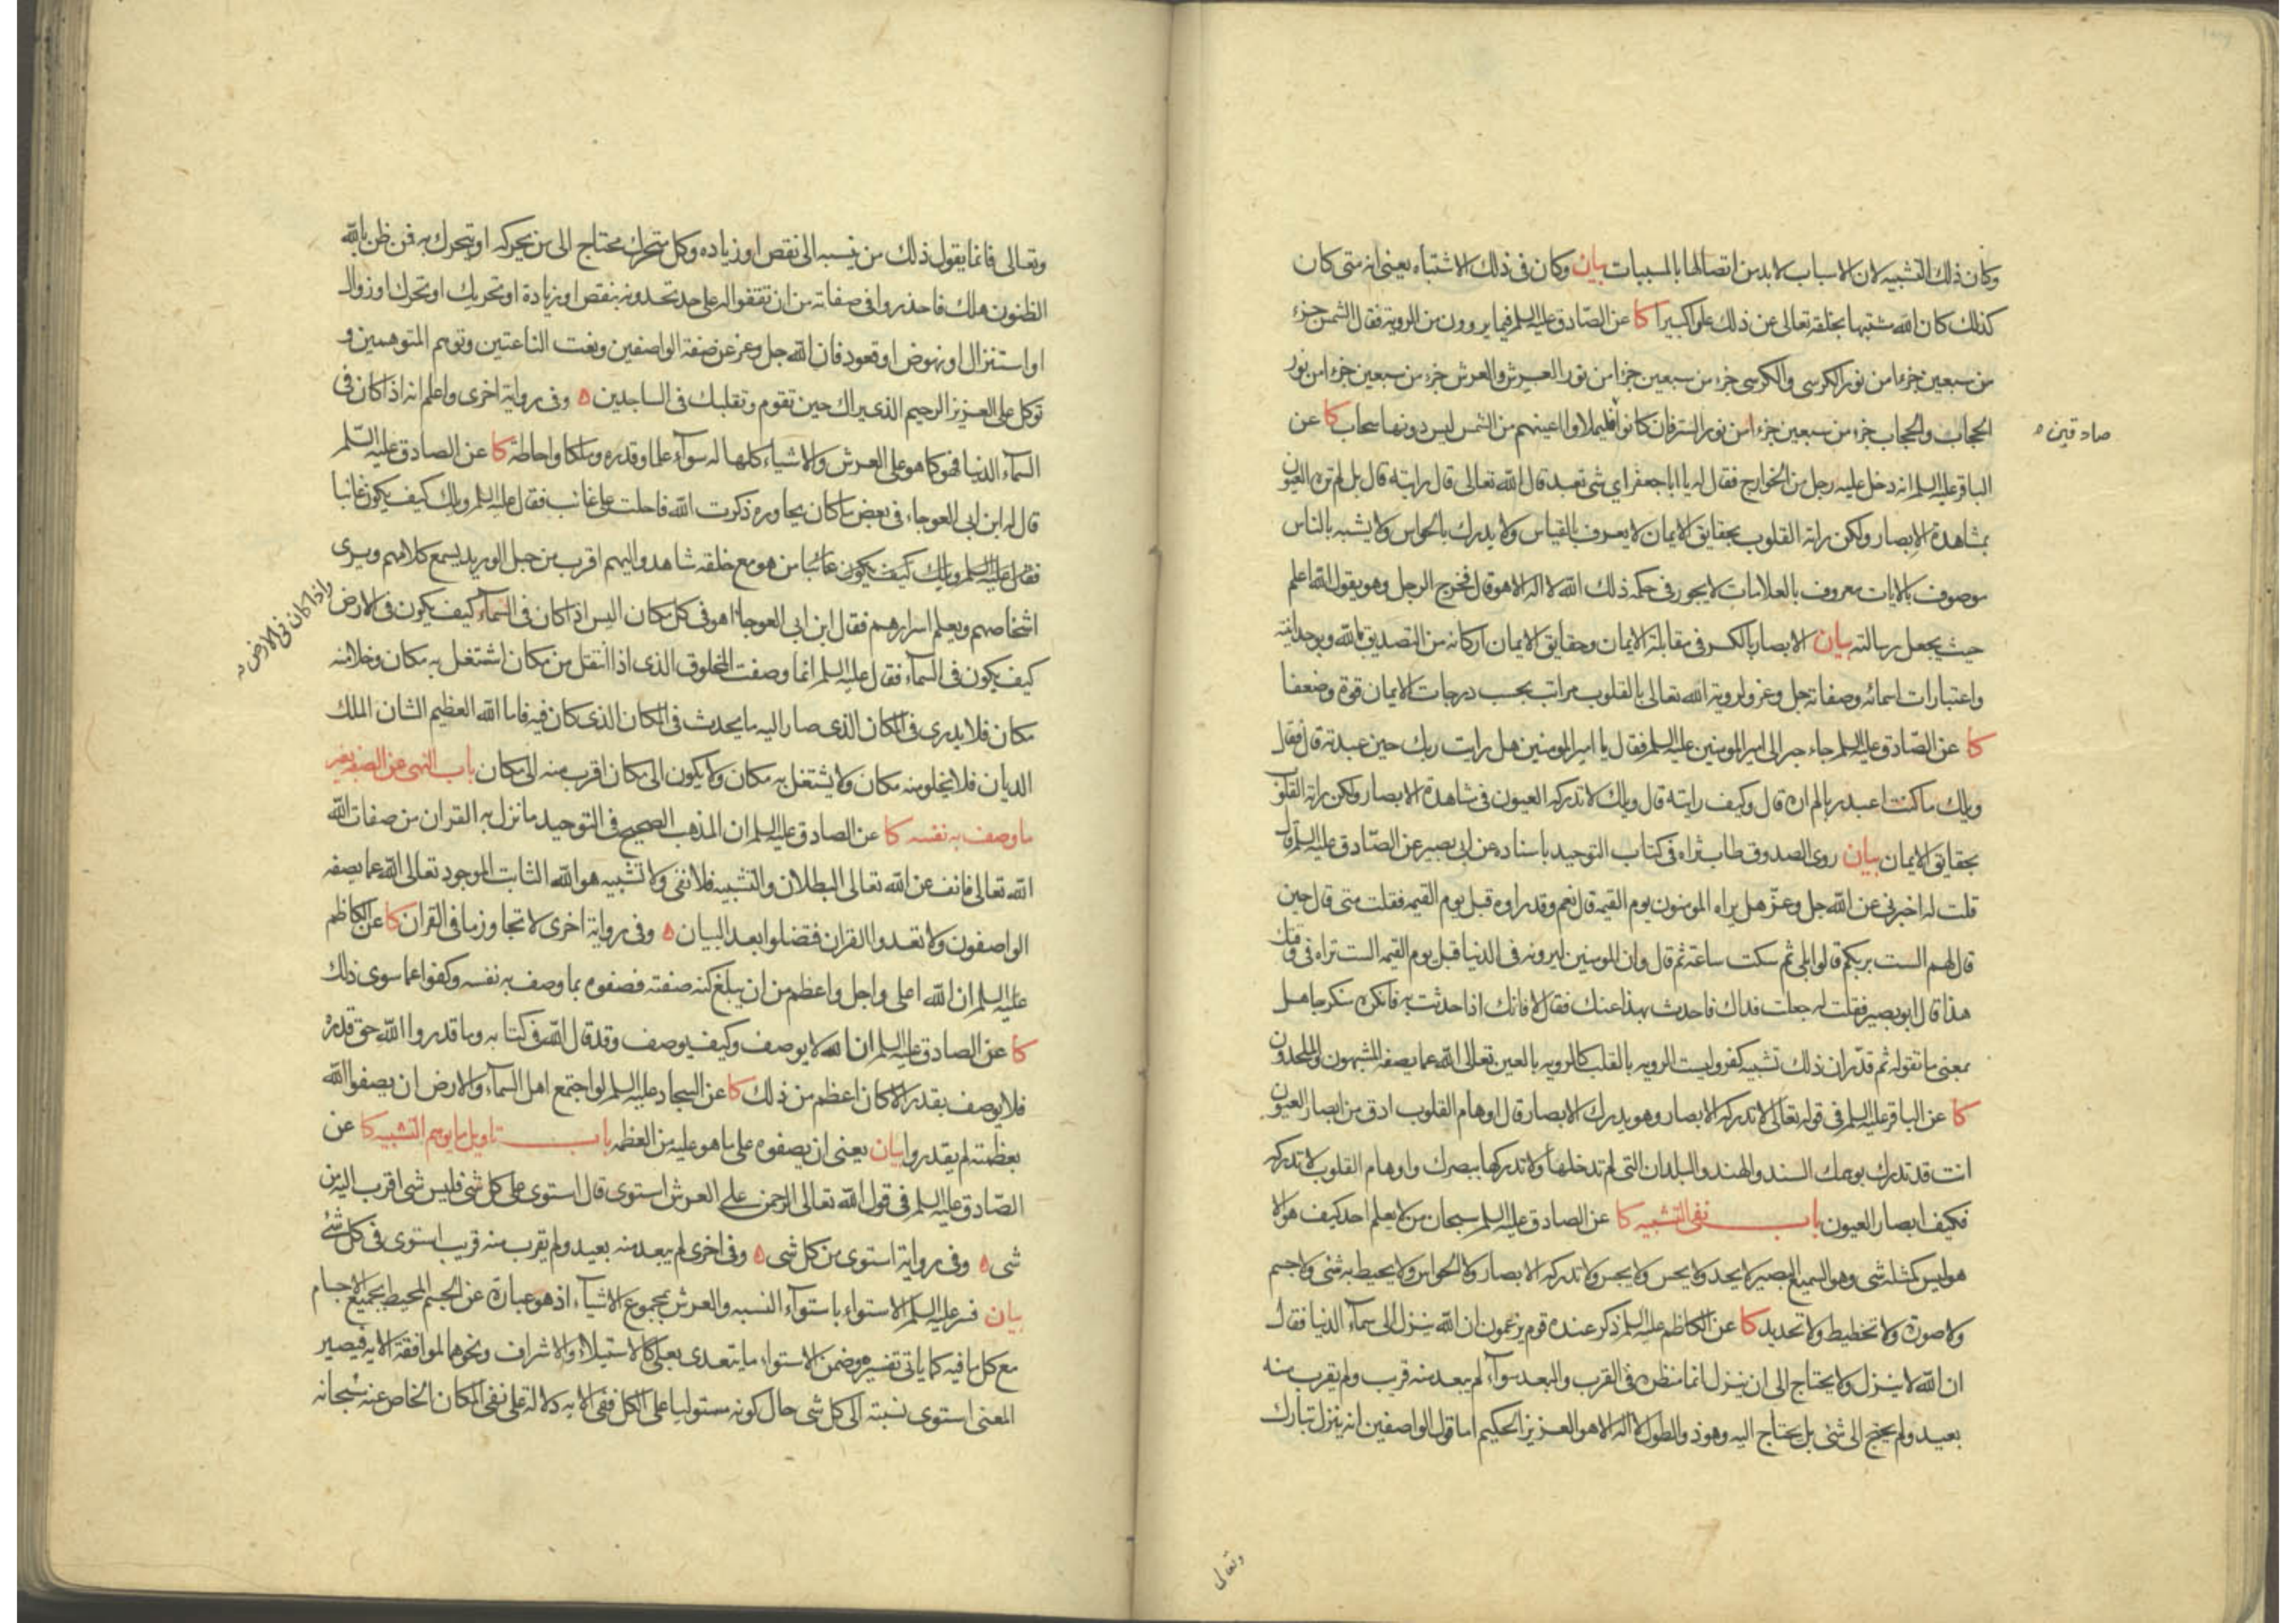 وكان ذلك التشبيه لان الاسباب لابد من اتصالها بالمسببات بيان وكان فى ذلك الاشتباه يعنى انه متى كان
كذلك كان الله مشتبها بخلقه تعالى عن ذلك علوا كبيرا كا عن الصادق عليه السلم فيما يروون من الروية فقال الشمس جزء
من سبعين جزءا من نور الكرسى والكرسى جزء من سبعين جزءا من نور العرش والعرش جزء من سبعين جزءا من نور
الحجاب والحجاب جزء من سبعين جزءا من نور الستر فان كانوا فليملاوا اعينهم من الشمس ليس دونها سحاب كا عن
صادقين ه
الباقر عليه السلم انه دخل عليه رجل من الخوارج فقال له يا ابا جعفر اي شى تعبد قال الله تعالى قال رايته قال بل لم تره العيون
بمشاهدة الابصار ولكن راته القلوب بحقايق الايمان لا يعرف بالقياس ولا يدرك بالحواس ولا يشبه بالناس
موصوف بالايات معروف بالعلامات لا يجور فى حكمه ذلك الله لا اله الا هو قال فخرج الرجل وهو يقول الله اعلم
حيث يجعل رسالته بيان الابصار بالكسر فى مقابلة الايمان وحقايق الايمان اركانه من التصديق بالله وبوحدانيته
واعتبارات اسمائه وصفاته جل وعز ولروية الله تعالى بالقلوب مراتب بحسب درجات الايمان قوة وضعفا
كا عن الصادق عليه السلم جاء حبر الى امير المومنين عليه السلم فقال يا امير المومنين هل رايت ربك حين عبدته قال فقال
ويلك ماكنت اعبد ربا لم اره قال وكيف رايته قال ويلك لا تدركه العيون فى مشاهدة الابصار ولكن راته القلوب
بحقايق الايمان بيان روى الصدوق طاب ثراه فى كتاب التوحيد باسناده عن ابى بصير عن الصادق عليه السلم قال
قلت له اخبرنى عن الله جل وعز هل يراه المومنون يوم القيمة قال نعم وقد راوه قبل يوم القيمة فقلت متى قال حين
قال لهم الست بربكم قالوا بلى ثم سكت ساعة ثم قال وان المومنين ليرونه فى الدنيا قبل يوم القيمة الست تراه فى وقتك
هذا قال ابو بصير فقلت له جعلت فداك فاحدث بهذا عنك فقال لا فانك اذا حدثت به فانكره منكر جاهل
بمعنى ما تقوله ثم قدر ان ذلك تشبيه كفر وليست الروية بالقلب كالروية بالعين تعالى الله عما يصفه المشبهون والملحدون
كا عن الباقر عليه السلم فى قوله تعالى لا تدركه الابصار وهو يدرك الابصار قال اوهام القلوب ادق من ابصار العيون
انت قد تدرك بوهمك السند والهند والبلدان التى لم تدخلها ولا تدركها ببصرك واوهام القلوب لا تدركه
فكيف ابصار العيون باب نفى التشبيه كا عن الصادق عليه السلم سبحان من لا يعلم احد كيف هو الا
هو ليس كمثله شى وهو السميع البصير لا يحد ولا يحس ولا يجس ولا تدركه الابصار ولا الحواس ولا يحيط به شى ولا جسم
ولا صورة ولا تخطيط ولا تحديد كا عن الكاظم عليه السلم ذكر عنده قوم يزعمون ان الله ينزل الى سماء الدنيا فقال
ان الله لا ينزل ولا يحتاج الى ان ينزل انما منظره فى القرب والبعد سواء لم يبعد منه قريب ولم يقرب منه
بعيد ولم يحتج الى شى بل يحتاج اليه وهو ذو الطول لا اله الا هو العزيز الحكيم اما قول الواصفين انه ينزل تبارك
وتعالى
وتعالى فانما يقول ذلك من ينسبه الى نقص او زيادة وكل متحرك محتاج الى من يحركه او يتحرك به فمن ظن بالله
الظنون هلك فاحذروا فى صفاته من ان تقفوا له على حد تحدونه بنقص او زيادة او تحريك او تحرك او زوال
او استنزال او نهوض او قعود فان الله جل وعز عن صفة الواصفين ونعت الناعتين وتوهم المتوهمين و
توكل على العزيز الرحيم الذى يراك حين تقوم وتقلبك فى الساجدين ه وفى رواية اخرى واعلم انه اذا كان فى
السماء الدنيا فهو كما هو على العرش والاشياء كلها له سواء علما وقدرة وملكا واحاطة كا عن الصادق عليه السلم
قال له ابن ابى العوجاء فى بعض ما كان يحاوره ذكرت الله فاحلت على غائب فقال عليه السلم ويلك كيف يكون غائبا
فقال عليه السلم ويلك كيف يكون غائبا من هو مع خلقه شاهد واليهم اقرب من حبل الوريد يسمع كلامهم ويرى
اشخاصهم ويعلم اسرارهم فقال ابن ابى العوجاء اهو فى كل مكان اليس اذا كان فى السماء كيف يكون فى الارض
واذا كان فى الارض
كيف يكون فى السماء فقال عليه السلم انما وصفت المخلوق الذى اذا انتقل من مكان اشتغل به مكان وخلا منه
مكان فلا يدرى فى المكان الذى صار اليه ما يحدث فى المكان الذى كان فيه فاما الله العظيم الشان الملك
الديان فلا يخلو منه مكان ولا يشتغل به مكان ولا يكون الى مكان اقرب منه الى مكان باب النهى عن الصفة بغير
ما وصف به نفسه كا عن الصادق عليه السلم ان المذهب الصحيح فى التوحيد ما نزل به القران من صفات الله
الله تعالى فانف عن الله تعالى البطلان والتشبيه فلا نفى ولا تشبيه هو الله الثابت الموجود تعالى الله عما يصفه
الواصفون ولا تعدوا القران فتضلوا بعد البيان ه وفى رواية اخرى لا تجاوز ما فى القران كا عن الكاظم
عليه السلم ان الله اعلى واجل واعظم من ان يبلغ كنه صفته فصفوه بما وصف به نفسه وكفوا عما سوى ذلك
كا عن الصادق عليه السلم ان الله لا يوصف وكيف يوصف وقد قال الله فى كتابه وما قدروا الله حق قدره
فلا يوصف بقدر الا كان اعظم من ذلك كا عن السجاد عليه السلم لو اجتمع اهل السماء والارض ان يصفوا الله
بعظمته لم يقدروا بيان يعنى ان يصفوه على ما هو عليه من العظمة باب تاويل ما يوهم التشبيه كا عن
الصادق عليه السلم فى قول الله تعالى الرحمن على العرش استوى قال استوى على كل شى فليس شى اقرب اليه من
شى ه وفى رواية استوى من كل شى ه وفى اخرى لم يبعد منه بعيد ولم يقرب منه قريب استوى فى كل شئ
بيان فسر عليه السلم الاستواء باستواء النسبة والعرش بمجموع الاشياء اذ هو عبارة عن الجسم المحيط بجميع الاجسام
مع كل ما فيه كما ياتى تفسيره وضمن الاستواء ما يتعدى بعلى كالاستيلاء والاشراف ونحوهما لموافقة الاية فيصير
المعنى استوى نسبته الى كل شى حال كونه مستوليا على الكل ففى الاية دلالة على نفى المكان الخاص عنه سبحانه